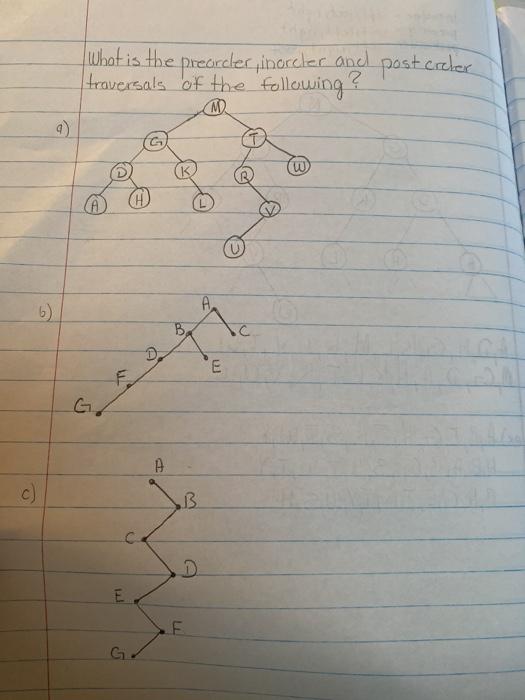 What is the preorder, inorder and postorder
traversals of the following?
a)
M
G T
D K R W
A H L V
U
b)
A
B C
D E
F
G
c)
A
B
C
D
E
F
G